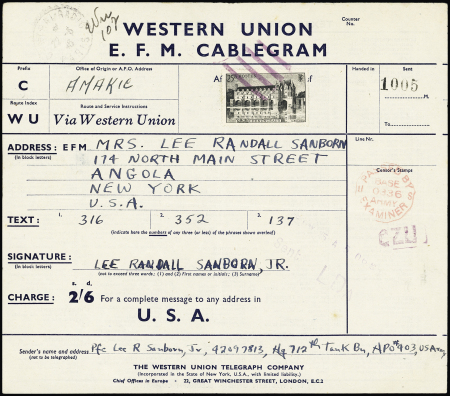 WESTERN UNION
E. F. M. CABLEGRAM
Counter No.
Prefix
C
Office of Origin or A.P.O. Address
AMAKIE
Handed in
1005
Sent
M.
Route Index
WU
Route and Service Instructions
Via Western Union
ADDRESS: E F M MRS. LEE RANDALL SANBORN
(In block letters)
174 NORTH MAIN STREET
ANGOLA
NEW YORK
U.S.A.
Line No.
Censor's Stamp
PASSED BY
ARMY
EXAMINER
TEXT: 1. 316 2. 352 3. 137
(Indicate here the numbers of any three (or less) of the phrases shown overleaf)
SIGNATURE: LEE RANDALL SANBORN, JR.
(In block letters)
(not to exceed three words: (1) and (2) First names or initials; (3) Surname)
s. d.
CHARGE: 2/6 For a complete message to any address in
U. S. A.
Sender's name and address
(not to be telegraphed)
Pfc Lee R Sanborn, Jr, 42097813, Hq 712th Tank Bn, APO #403, US Army
THE WESTERN UNION TELEGRAPH COMPANY
(Incorporated in the State of New York, U.S.A., with limited liability.)
Chief Offices in Europe - 22, GREAT WINCHESTER STREET, LONDON, E.C.2